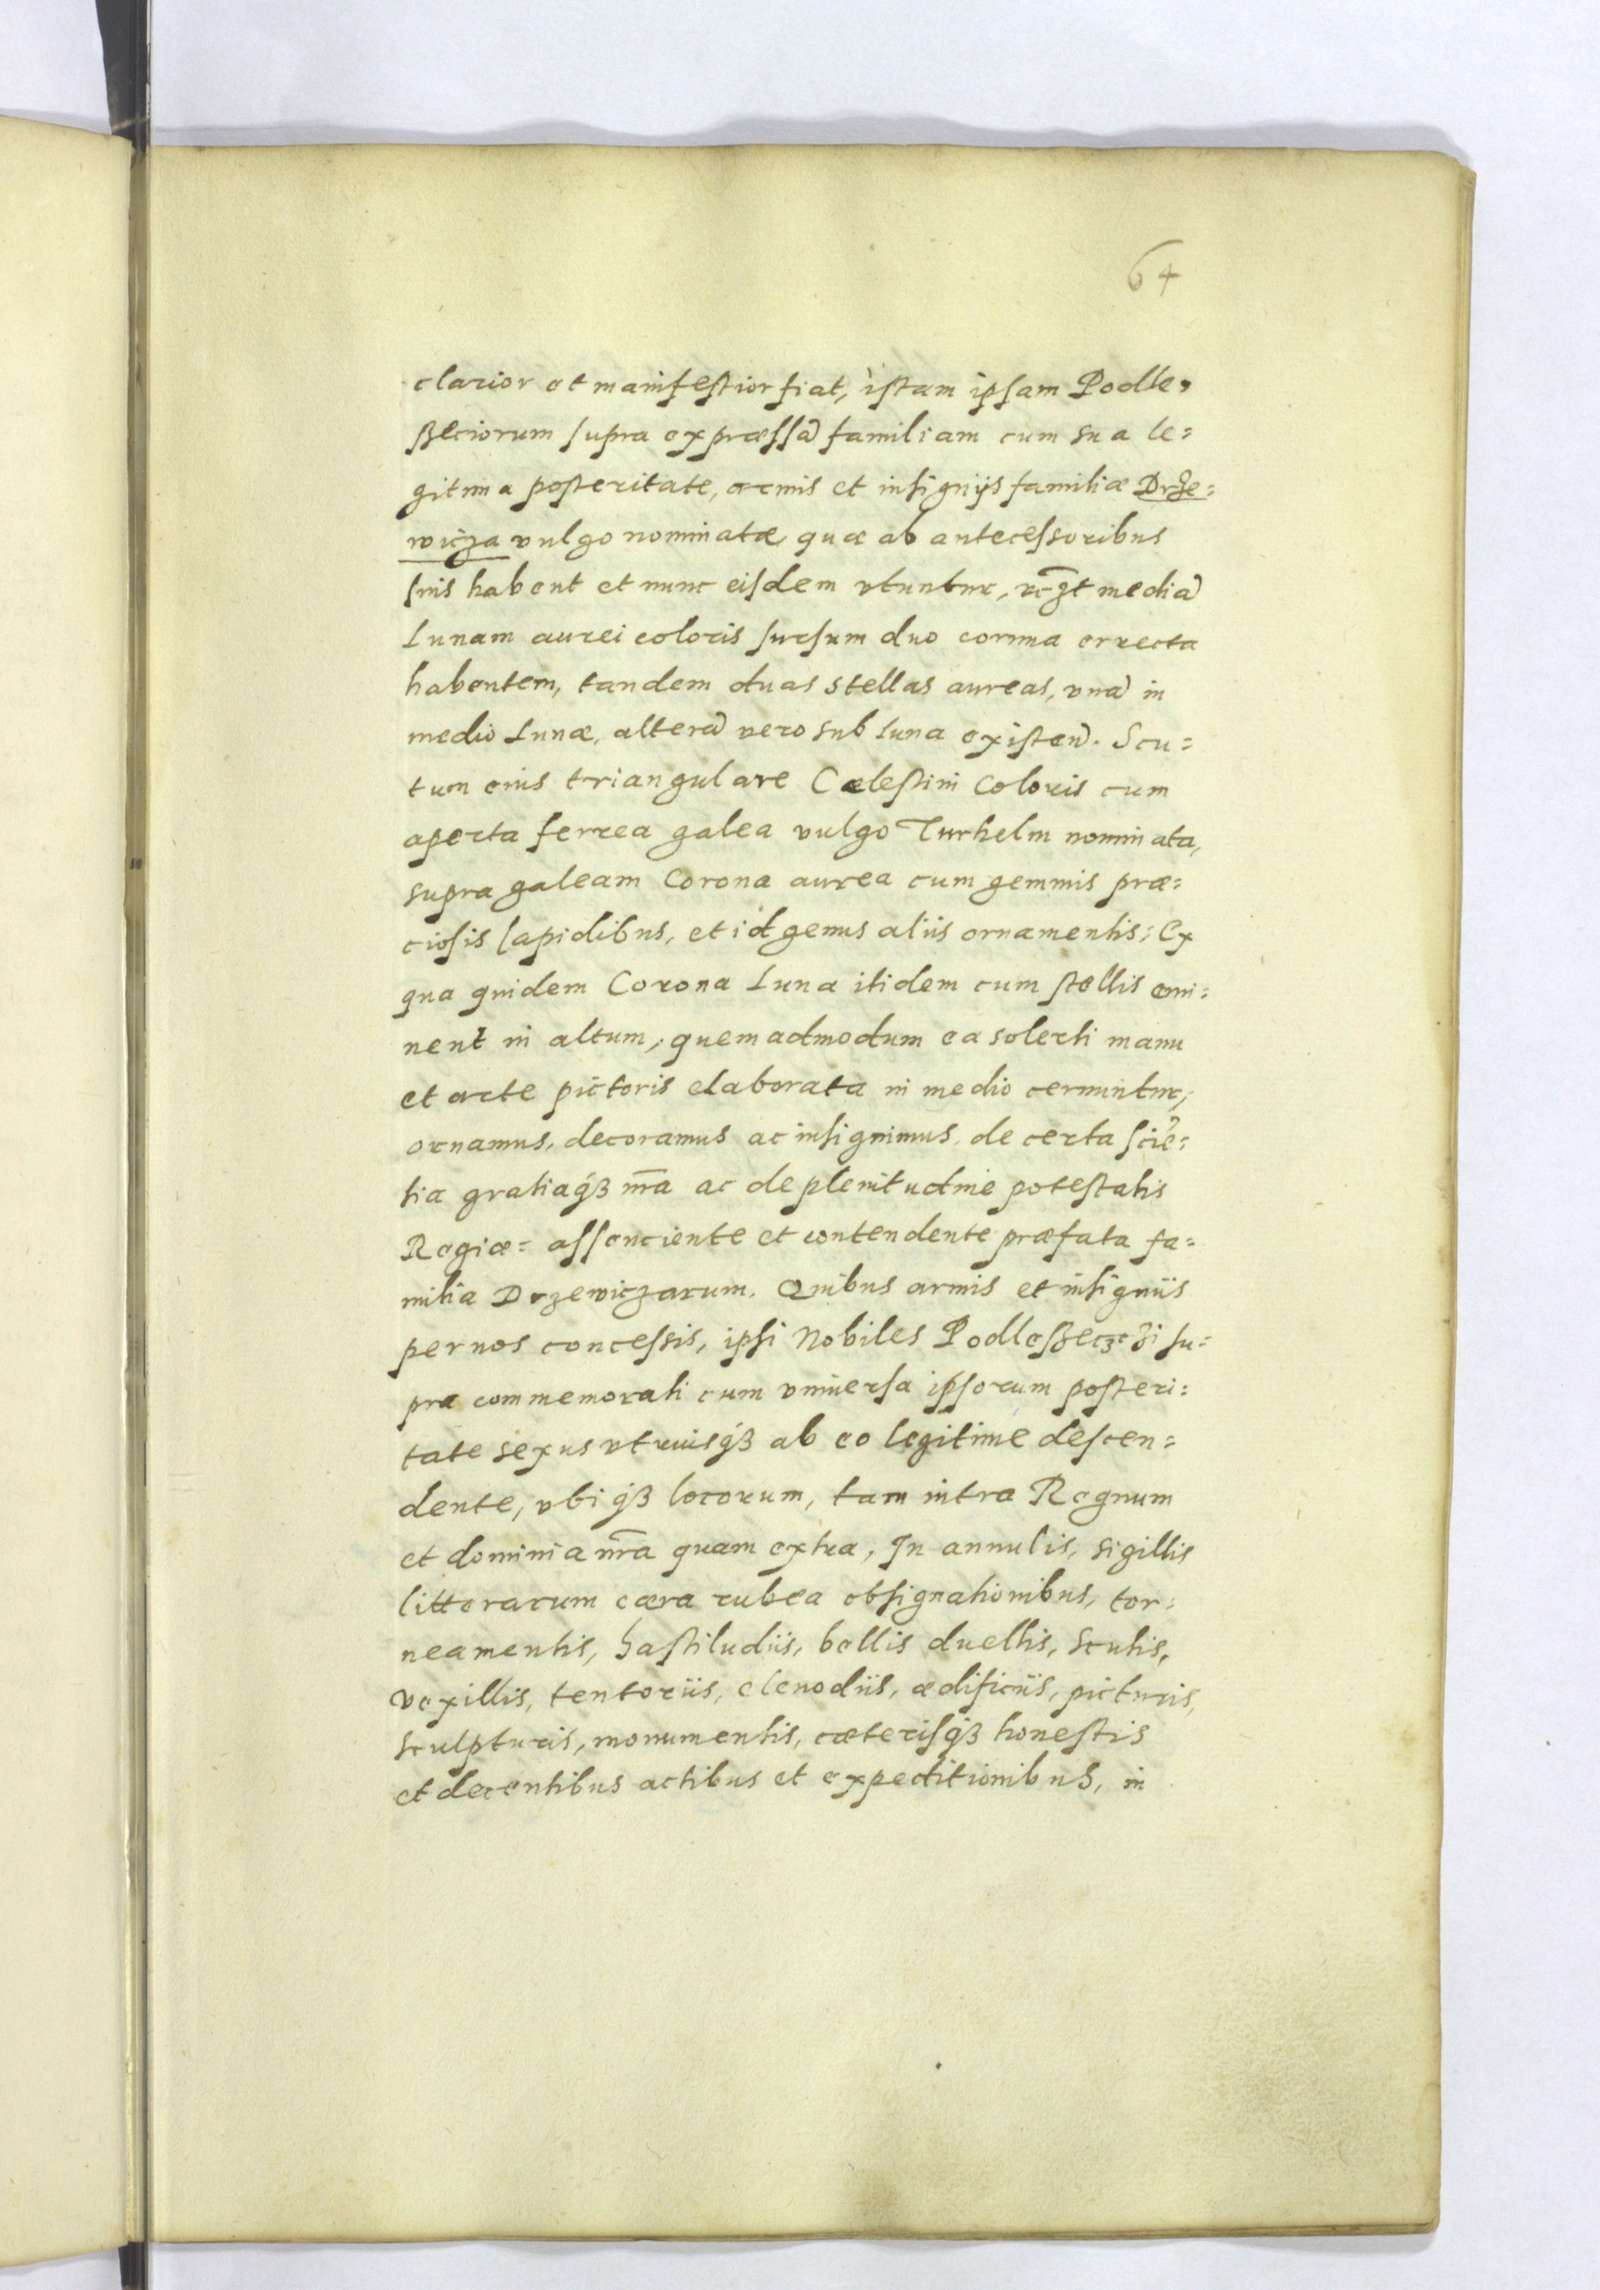 64
clarior et manifestior fiat, istam ipsam Podle,
ßeciorum supra expræssā familiam cum sua le=
gitima posteritate, armis et insignijs familiæ Drze=
wicza vulgo nominatæ, quæ ab antecessoribus
suis habent et nunc eisdem vtuntur, mediā
Lunam aurei coloris sursum duo cornua errecta
habentem, tandem duas stellas aureas, vnā in
medio Lunæ, alterā vero sub luna existen̄. Scu=
tum eius triangulare Cælestini Coloris cum
aperta ferrea galea vulgo Turhelm nominata,
supra galeam Corona aurea cum gemmis præ=
ciosis lapidibus, et id genus aliis ornamentis; Ex
qua quidem Corona Luna itidem cum stellis emi=
nent in altum, quemadmodum ea solerti manu
et arte pictoris elaborata in medio cernuntur,
ornamus, decoramus ac insignimus, de certa sciē=
tia gratiaqȝ nr̄a ac de plenitudine potestatis
Regiæ= assenciente et contendente præfata fa=
milia Drzewiczarum. Quibus armis et insigniis
per nos concessis, ipsi Nobiles Podleßeczczi su=
pra commemorati cum vniuersa ipsorum posteri=
tate sexus vtriusqȝ ab eo legitime descen=
dente, vbiqȝ locorum, tam intra Regnum
et dominia nr̄a quam extra, In annulis, sigillis
litterarum cæra rubea obsignationibus, tor=
neamentis, hastiludiis, bellis duellis, scutis,
vexillis, tentoriis, clenodiis, ædificiis, picturis,
sculpturis, monumentis, cæterisqȝ honestis
et decentibus actibus et expeditionibus, in